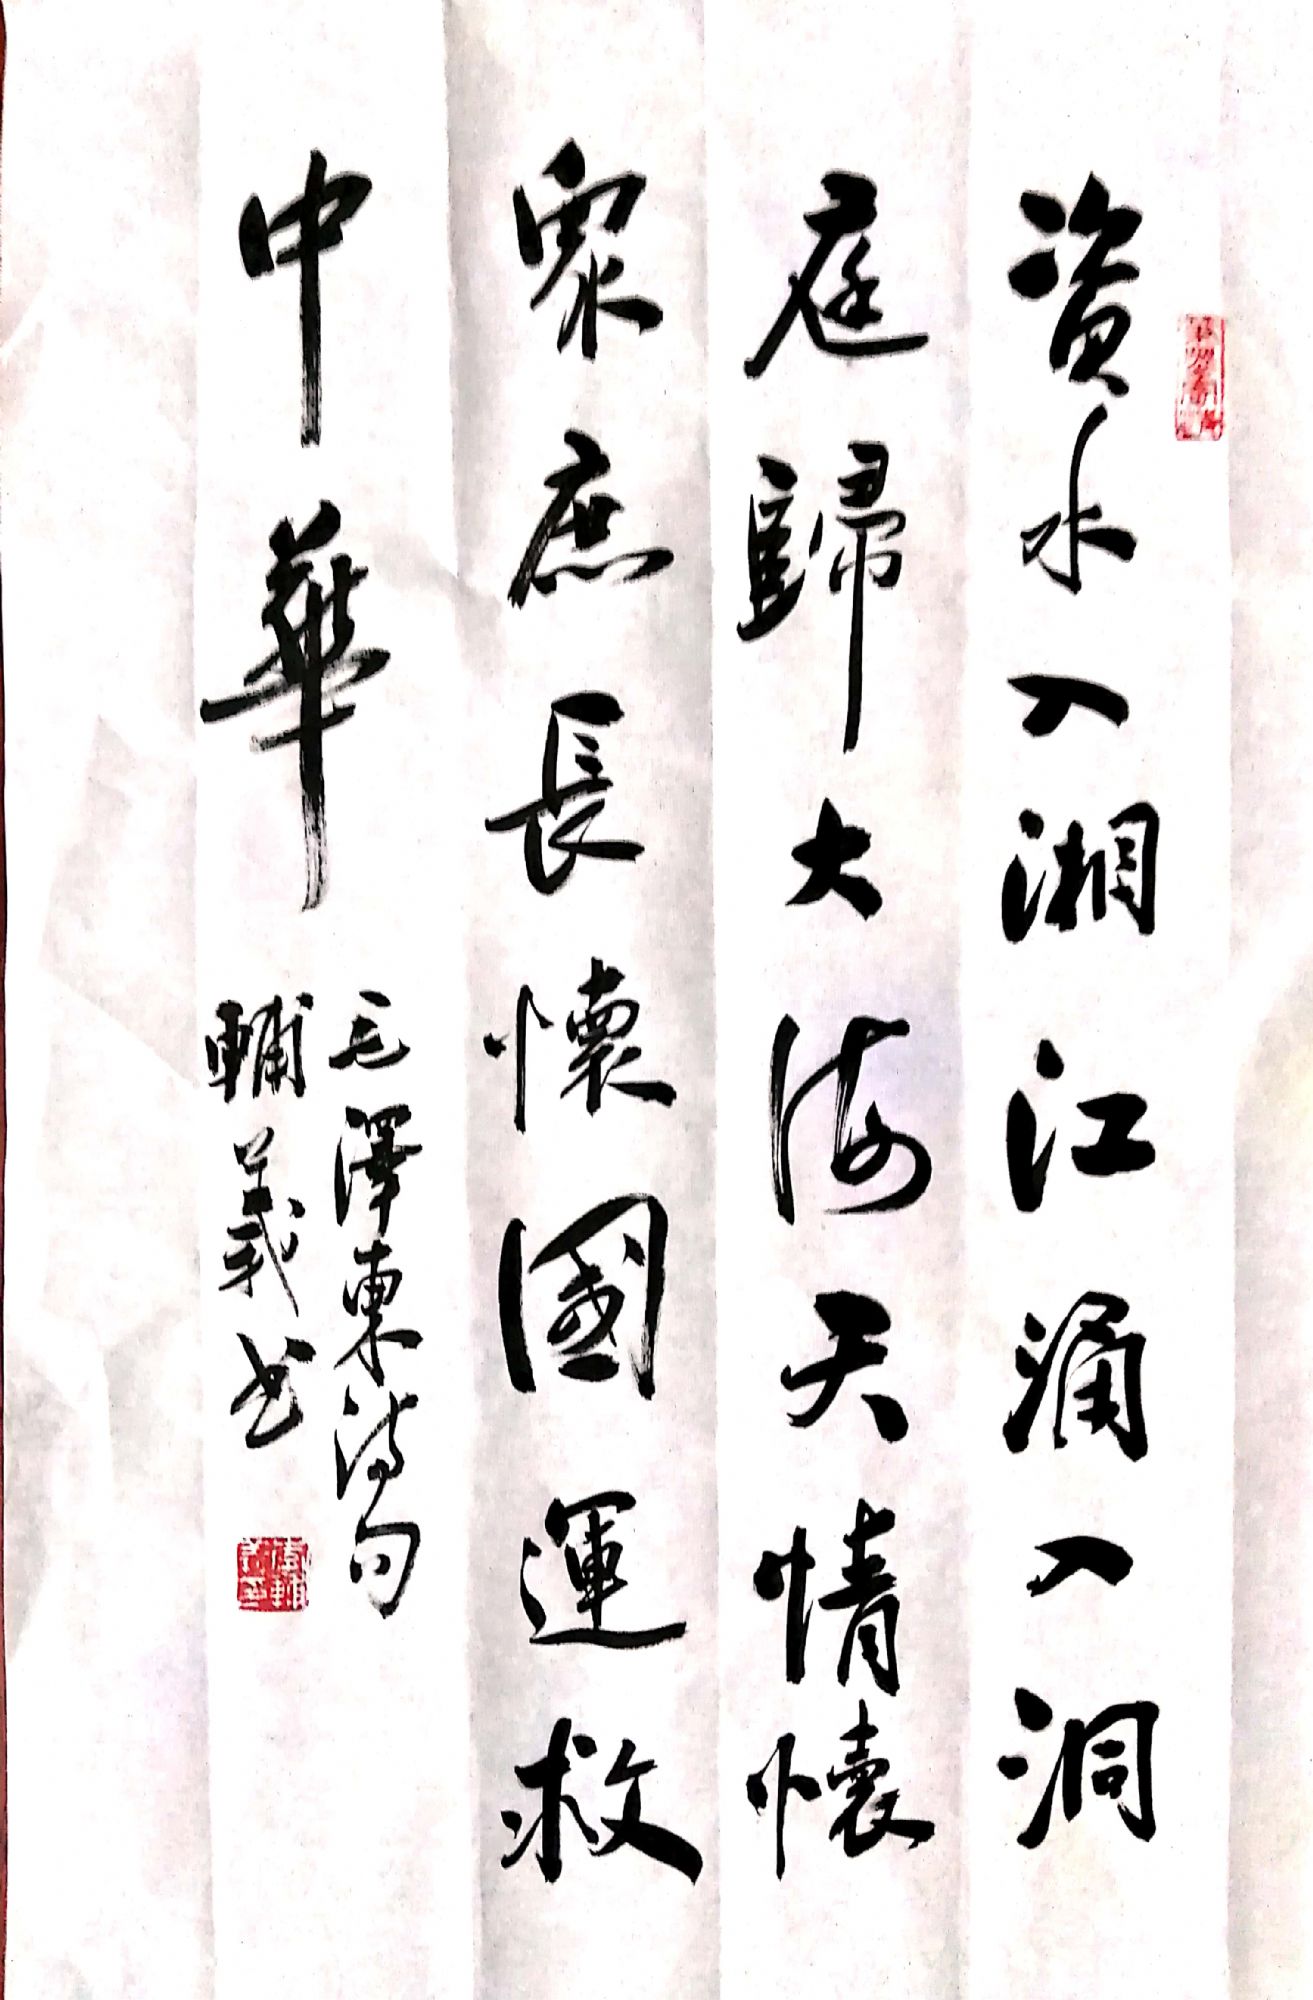 資水入湘江涌入洞
庭歸大海天情懷
眾庶長懷國運救
中華
毛澤東詩句
輔義书